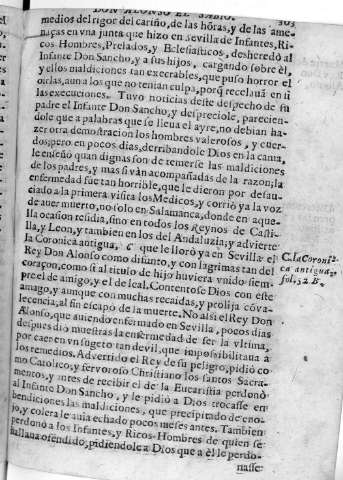 DON ALONSO EL SABIO. 303
medios del rigor del cariño, de las hōras, y de las ame-
nazas en vna junta que hizo en Sevilla de Infantes, Ri-
cos-Hombres, Prelados, y Eclesiasticos, desheredò al
Infante Don Sancho, y a sus hijos, cargando sobre èl,
y ellos maldiciones tan execrables, que puso horror el
oirlas, aun a los que no tenian culpa, porq̄ recelauā en si
las execuciones. Tuvo noticias deste despecho de su
padre el Infante Don Sancho, y despreciole, parecien-
dole que a palabras que se lleua el ayre, no debian ha-
zer otra demostracion los hombres valerosos, y cuer-
dos; pero en pocos dias, derribandole Dios en la cama,
le enseñò quan dignas son de temerse las maldiciones
de los padres, y mas si vàn acompañadas de la razon; la
enfermedad fue tan horrible, que le dieron por desau-
ciado a la primera visita los Medicos, y corriò ya la voz
de auer muerto, no solo en Salamanca, donde en aque-
lla ocasion residia, sino en todos los Reynos de Casti-
lla, y Leon, y tambien en los del Andaluzia; y advierte
la Coronica antigua, C que le llorò ya en Sevilla el
Rey Don Alonso como difunto, y con lagrimas tan del
coraçon, como si al titulo de hijo huviera vnido siem-
pre el de amigo, y el de leal. Contentose Dios con este
amago, y aunque con muchas recaidas, y prolija cōva-
lecencia, al fin escapò de la muerte. No assi el Rey Don
Alonso, que auiendo enfermado en Sevilla, pocos dias
despues diò muestras la enfermedad de ser la vltima,
por caer en vn sugeto tan devil, que impossibilitaua à
los remedios. Advertido el Rey de su peligro, pidiò co-
mo Catolico, y fervoroso Christiano los santos Sacra-
mentos, y antes de recibir el de la Eucaristia perdonò
al Infante Don Sancho, y le pidiò a Dios trocasse en
bendiciones las maldiciones, que precipitado de eno-
jo, y colera le auia echado pocos meses antes. Tambien
perdonò a los Infantes, y Ricos-Hombres de quien se
hallaua ofendido, pidiendole a Dios que a èl le perdo-
nasse:
C. la Coroni-
ca antigua,
fol. 52 B.